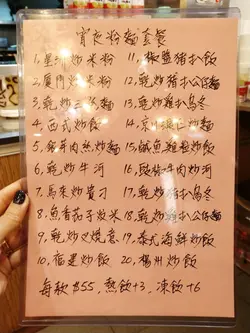 寶良粉麵套餐
1, 星洲炒米粉 11, 椒鹽豬扒飯
2, 廈門炒米粉 12, 乾炒豬扒公仔麵
3, 乾炒三絲麵 13, 乾炒豬扒烏冬
4, 西式炒飯 14, 京川銀芽炒麵
5, 銀芽肉絲炒麵 15, 鹹魚雞粒炒飯
6, 乾炒牛河 16, 豉椒牛肉炒河
7, 馬來炒貴刁 17, 乾炒豬扒烏冬
8, 魚香茄子炆米 18, 乾炒豬扒公仔麵
9, 乾炒叉燒意 19, 泰式海鮮炒飯
10, 福建炒飯 20, 楊州炒飯
每款 $55, 熱飲+3, 凍飲+6